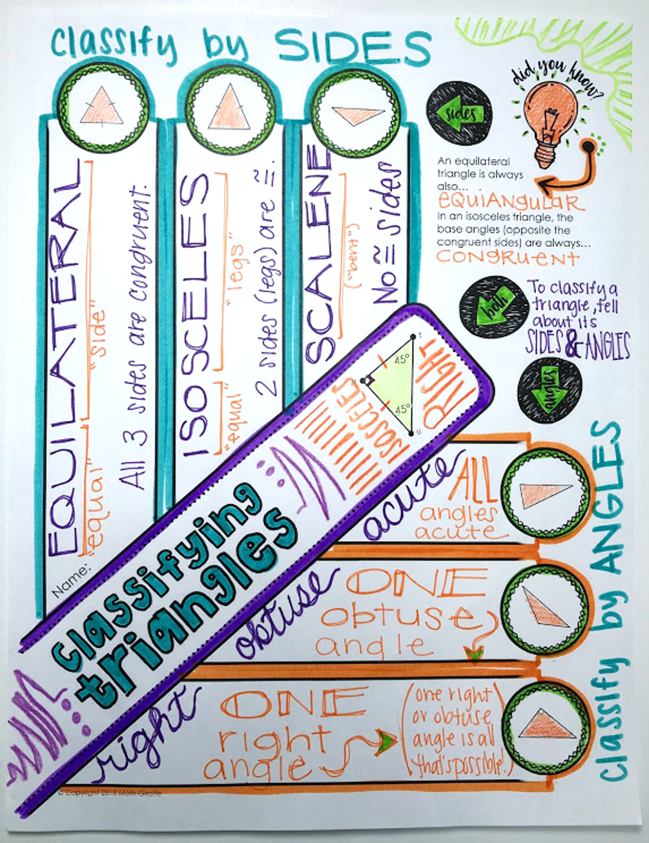 Classify by SIDES
EQUILATERAL
"equal" "side"
All 3 sides are congruent.
ISOSCELES
"equal" "legs"
2 sides (legs) are ≅.
SCALENE
("bent")
No ≅ sides
did you know?
sides
An equilateral
triangle is always
also...
EQUIANGULAR
In an isosceles triangle, the
base angles (opposite the
congruent sides) are always...
CONGRUENT
both
To classify a
triangle, tell
about its
SIDES & ANGLES
angles
Classify by ANGLES
RIGHT
ISOSCELES
45°
45°
Name:
Classifying
triangles
acute
ALL
angles
acute
obtuse
ONE
obtuse
angle
right
ONE
right
angle
(one right
or obtuse
angle is all
that's possible!)
© Copyright 2018 Math Giraffe